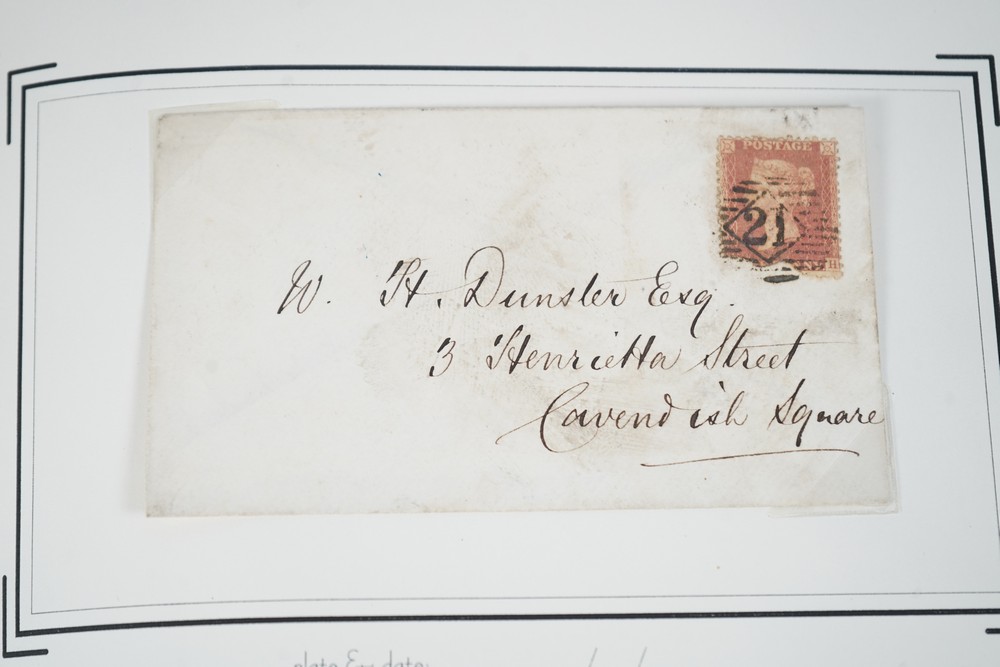 POSTAGE
21
H
W. H. Dunster Esq.
3 Henrietta Street
Cavendish Square
plate & date: